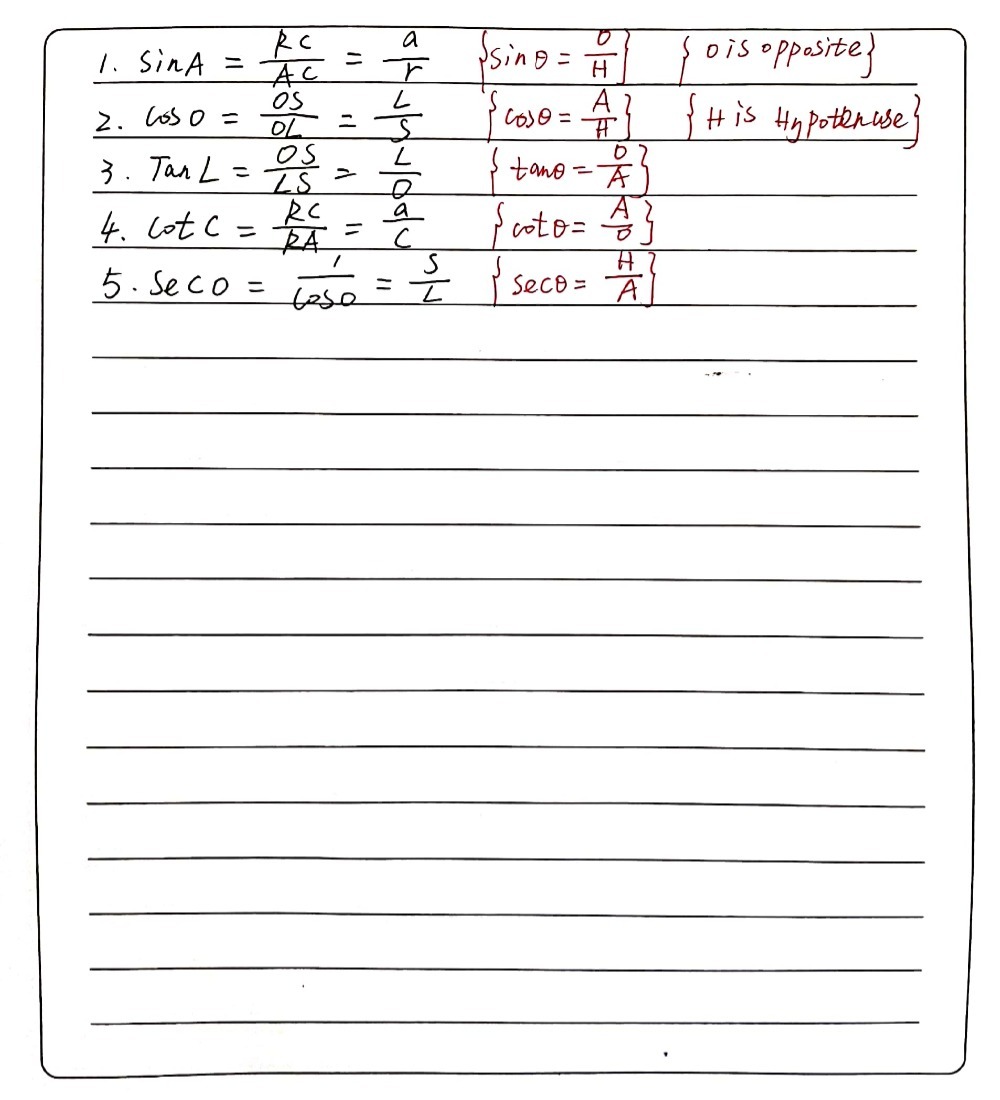 1. SinA = RC/AC = a/r {sinθ = O/H} {O is opposite}
2. Cos O = OS/OL = L/S {cosθ = A/H} {H is Hypotenuse}
3. Tan L = OS/LS = L/O {tanθ = O/A}
4. Cot C = RC/RA = a/C {cotθ = A/O}
5. Sec O = 1/Cos O = S/L {secθ = H/A}